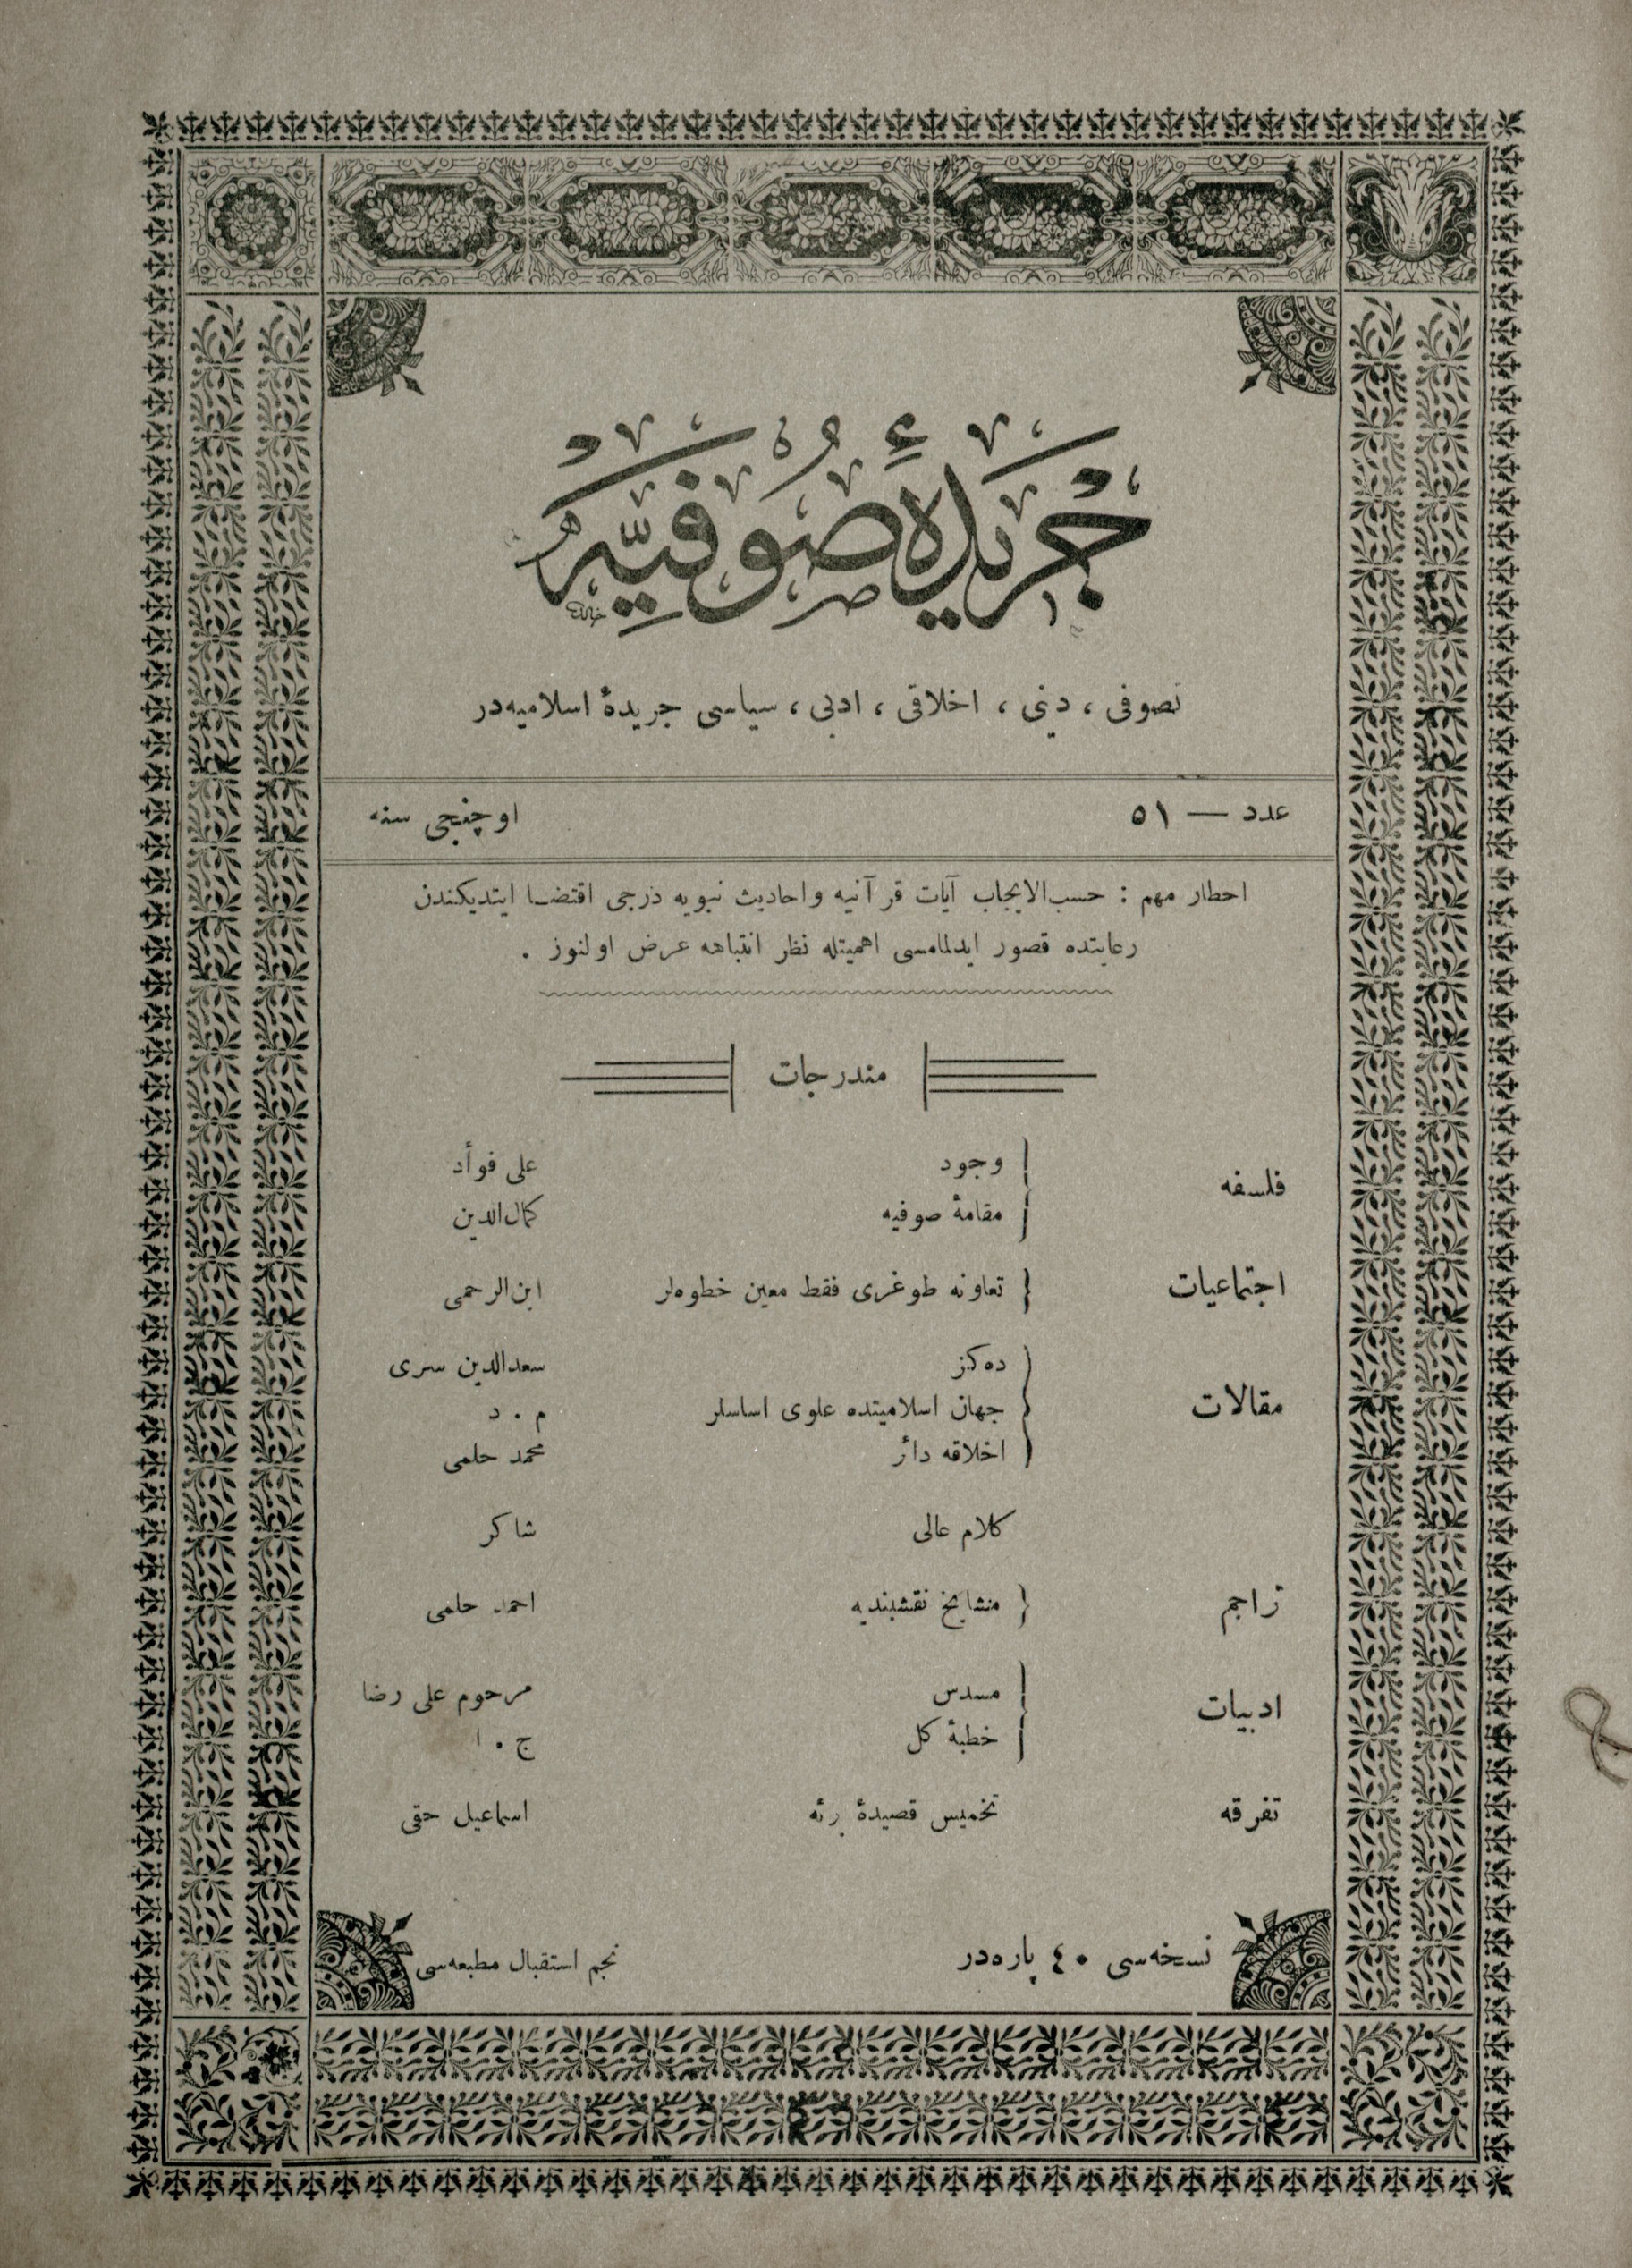 جریدهٔ صوفیه
تصوفی ، دینی ، اخلاقی ، ادبی ، سیاسی جریدهٔ اسلامیه‌در
عدد — ٥١
اوچنجی سنه
احطار مهم : حسب‌الایجاب آیات قرآنیه واحادیث نبویه درجی اقتضا ایتدیکندن
رعایتده قصور ایدلمامسی اهمیتله نظر انتباهه عرض اولنور .
مندرجات
فلسفه
وجود
علی فوأد
مقامهٔ صوفیه
کمال‌الدین
اجتماعیات
تعاونه طوغری فقط معین خطوه‌لر
ابن‌الرحمی
مقالات
ده‌کز
سعدالدین سری
جهان اسلامیتده علوی اساسلر
م . د
اخلاقه دائر
محمد حلمی
کلام عالی
شاکر
تراجم
مشایخ نقشبندیه
احمد حلمی
ادبیات
مسدس
مرحوم علی رضا
خطبهٔ کل
ج . ا
تفرقه
تخمیس قصیدهٔ برئه
اسماعیل حقی
نسخه‌سی ٤٠ پاره‌در
نجم استقبال مطبعه‌سی